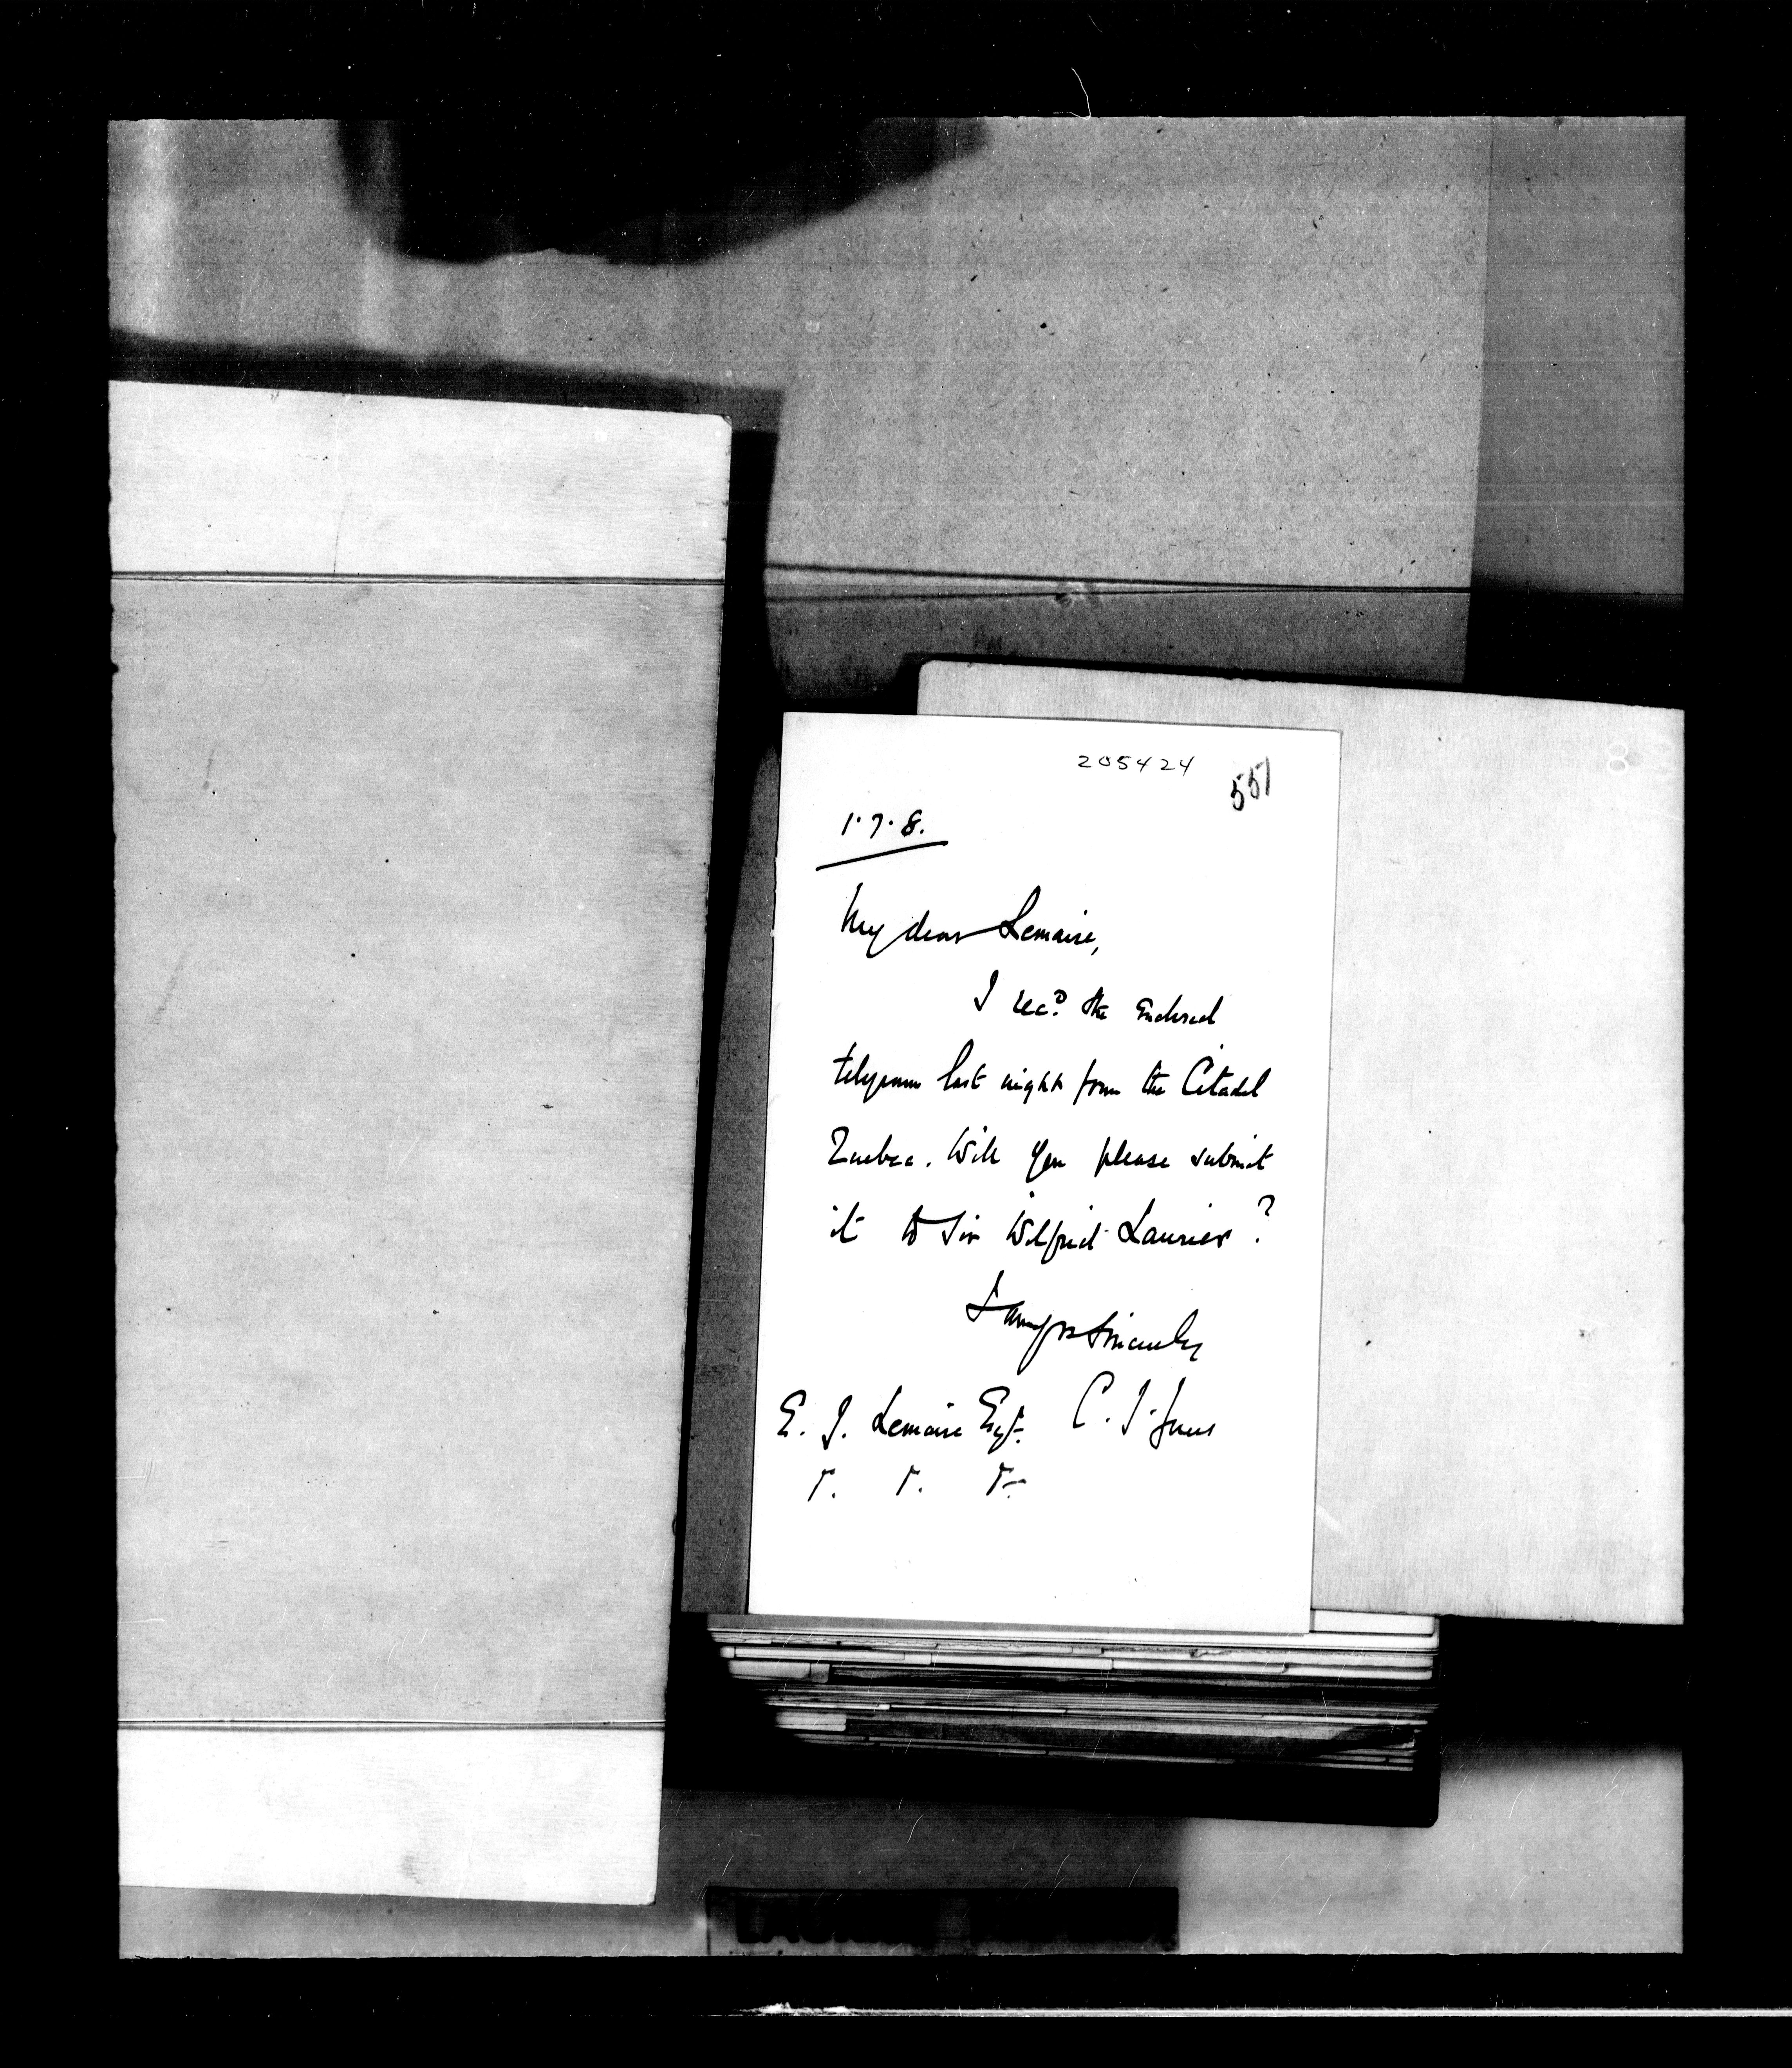 205424
551
1.7.8.
My dear Lemaire,
I recd. the enclosed
telegram last night from the Citadel
Quebec. Will you please submit
it to Sir Wilfrid Laurier?
I am yrs sincerely
E. J. Lemaire Esq. C. J. Jones